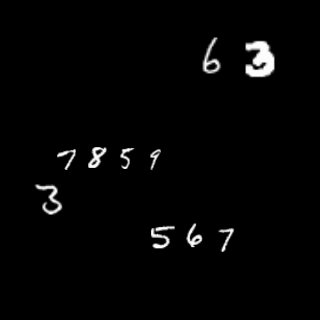 6 3
7859
3
567